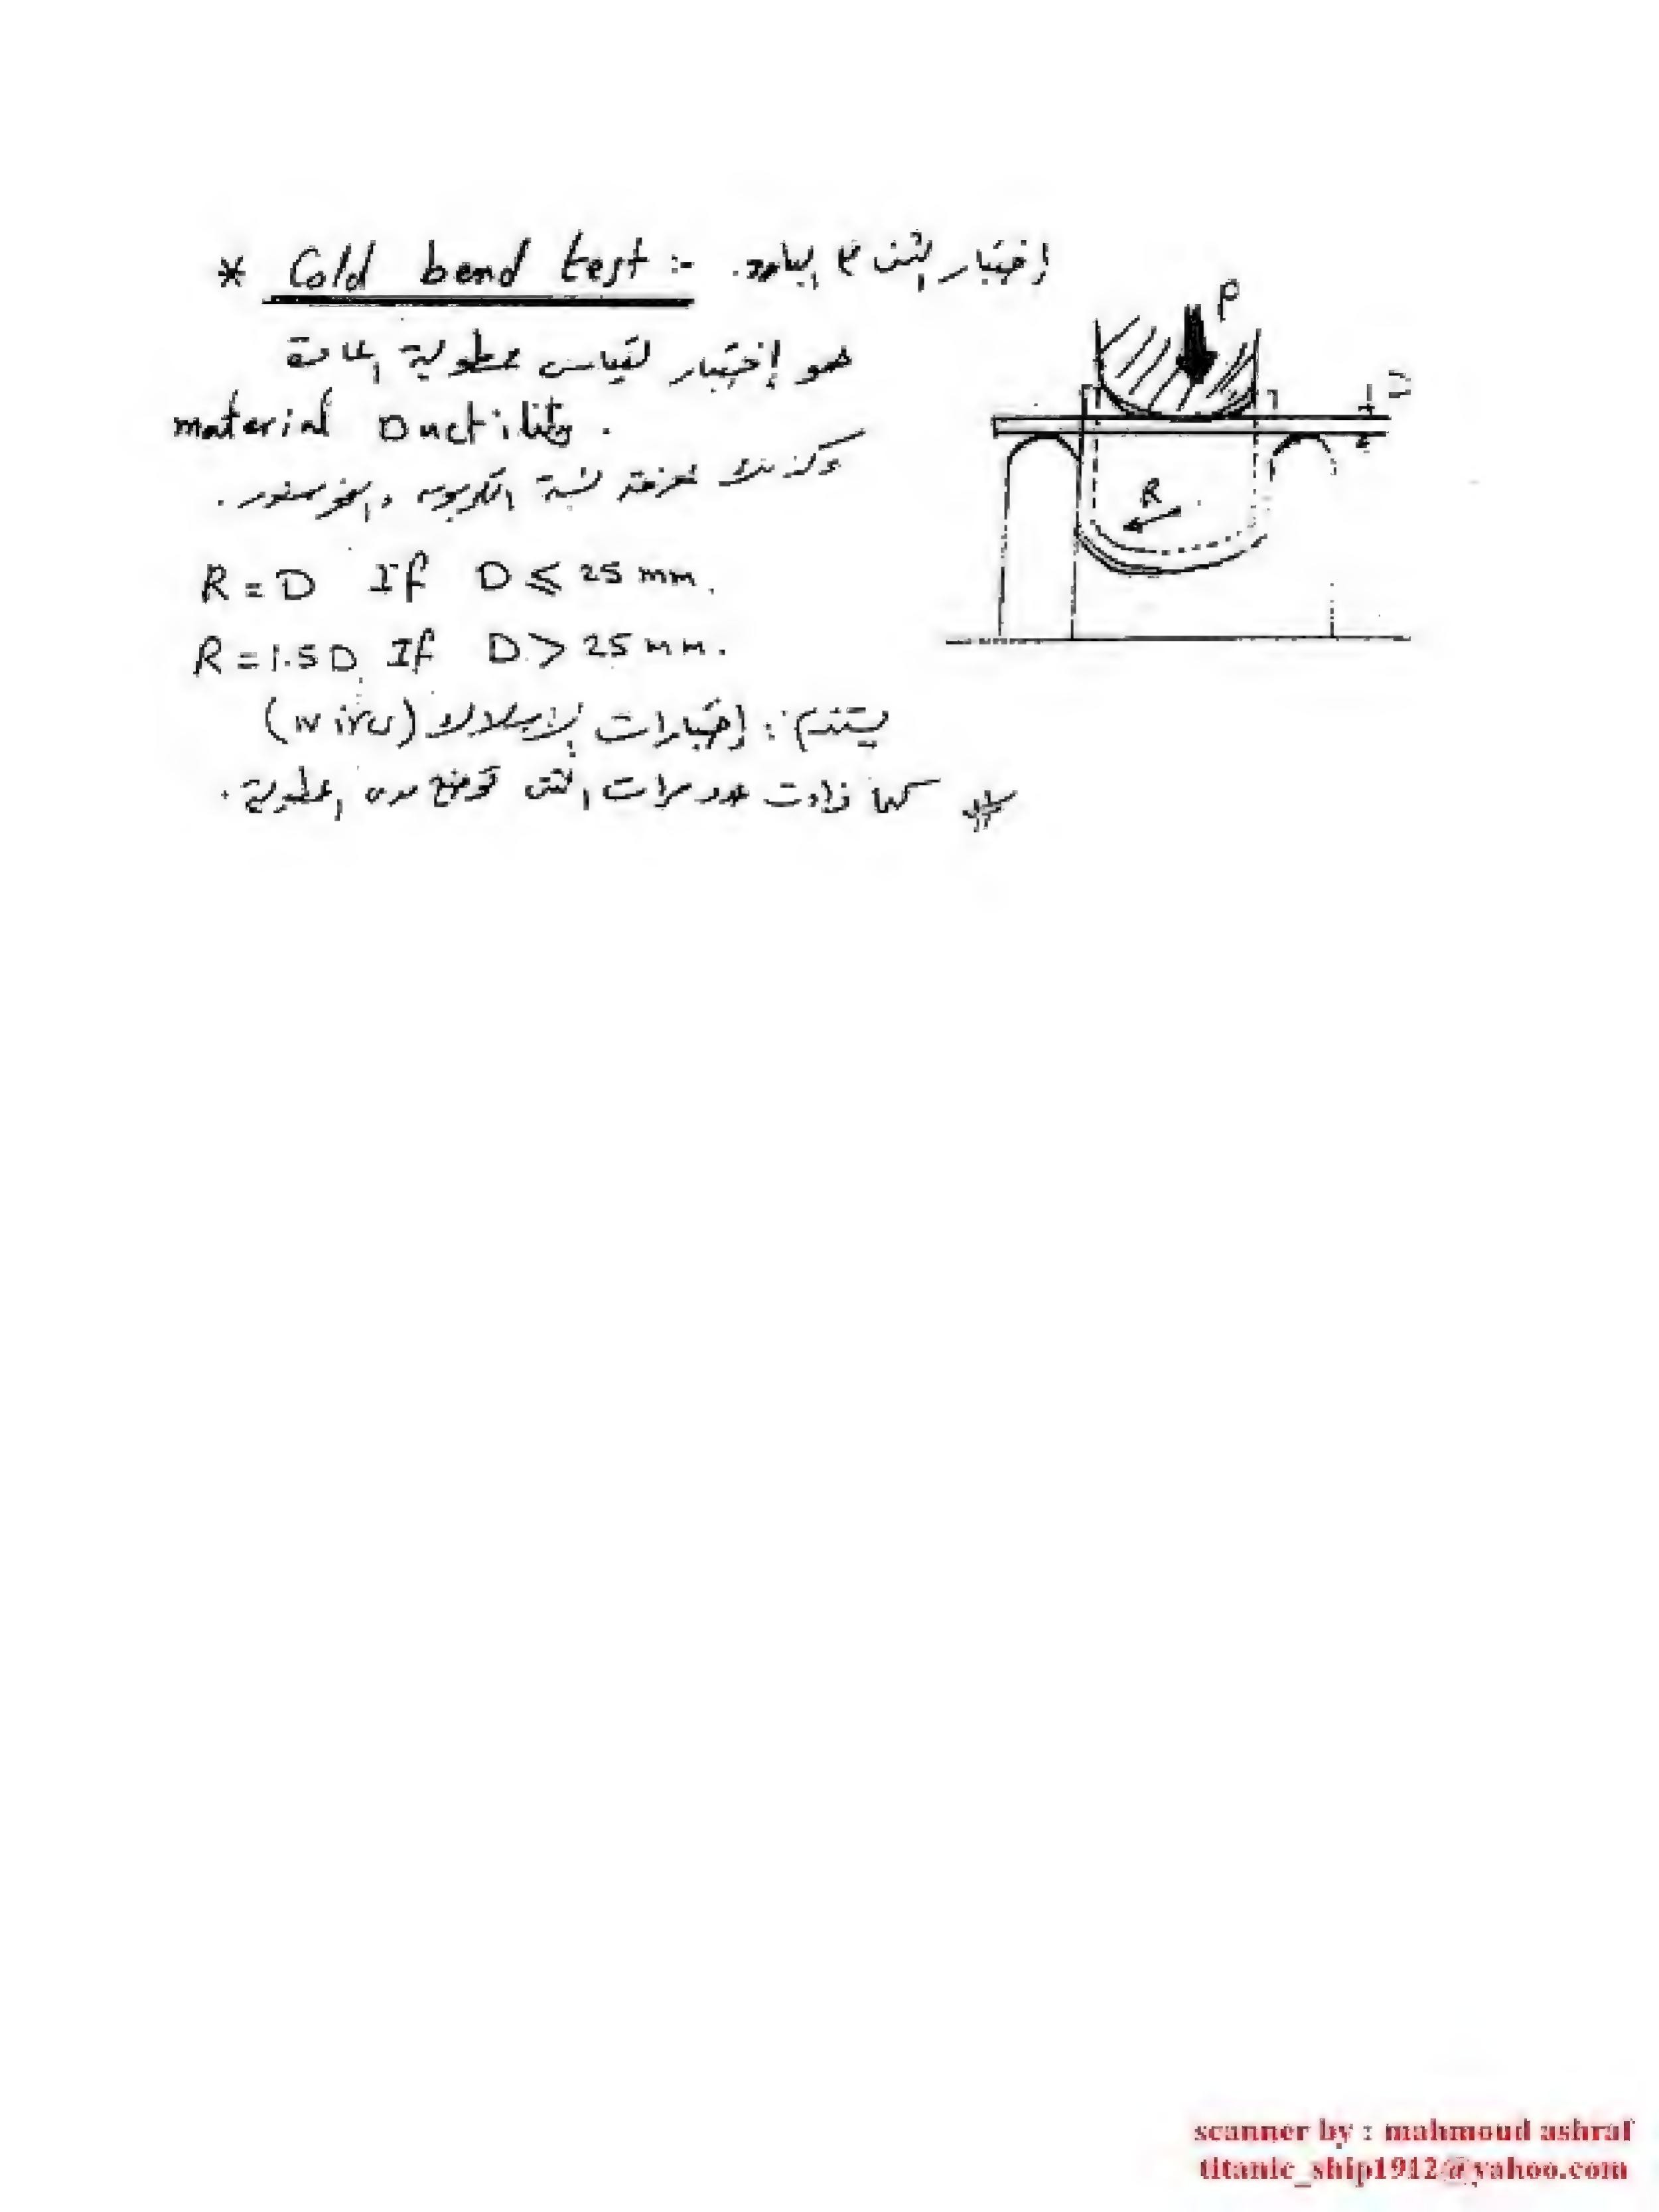 * Cold bend test :- إختبار الثنى على البارد.
هو إختبار لقياس ممطولية المادة
material Ductility.
وكذلك لمعرفة نسبة الكربون والفوسفور.
R = D If D ⩽ 25 mm.
R = 1.5 D If D > 25 mm.
يستخدم : إختبارات الأسلاك (wires)
* كلما زادت عدد مرات الثنى توضح مدى الممطولية.
P
D
R
scanner by : mahmoud ashraf
titanic_ship1912@yahoo.com